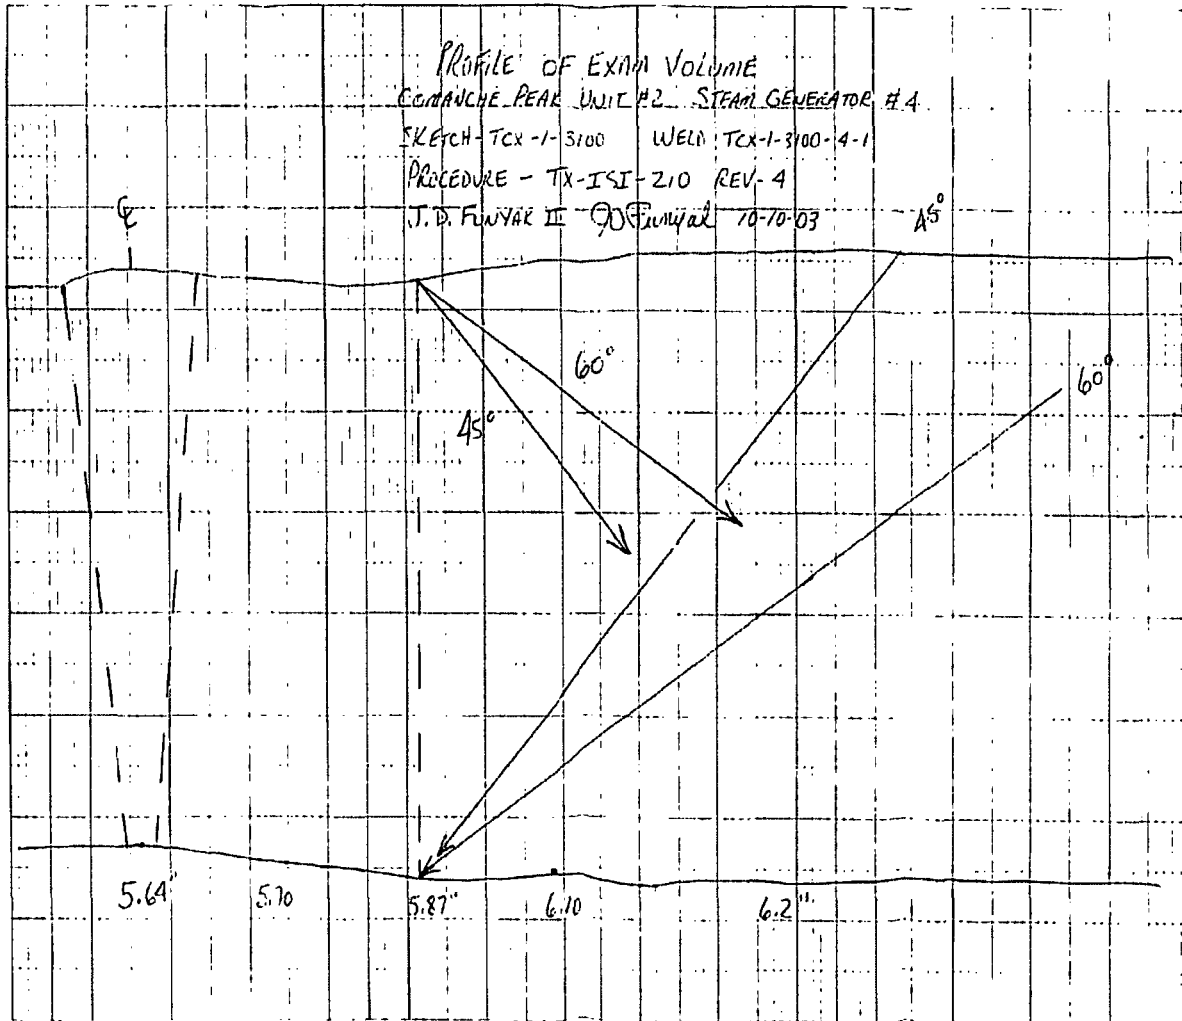 PROFILE OF EXAM VOLUME
COMANCHE PEAK UNIT #2 STEAM GENERATOR #4
SKETCH - TCX-1-3100 WELD TCX-1-3100-4-1
PROCEDURE - TX-ISI-210 REV-4
J.D. FUNYAK II JD Funyak 10-10-03
℄
45°
60°
60°
45°
5.64"
5.70
5.87"
6.10
6.2"